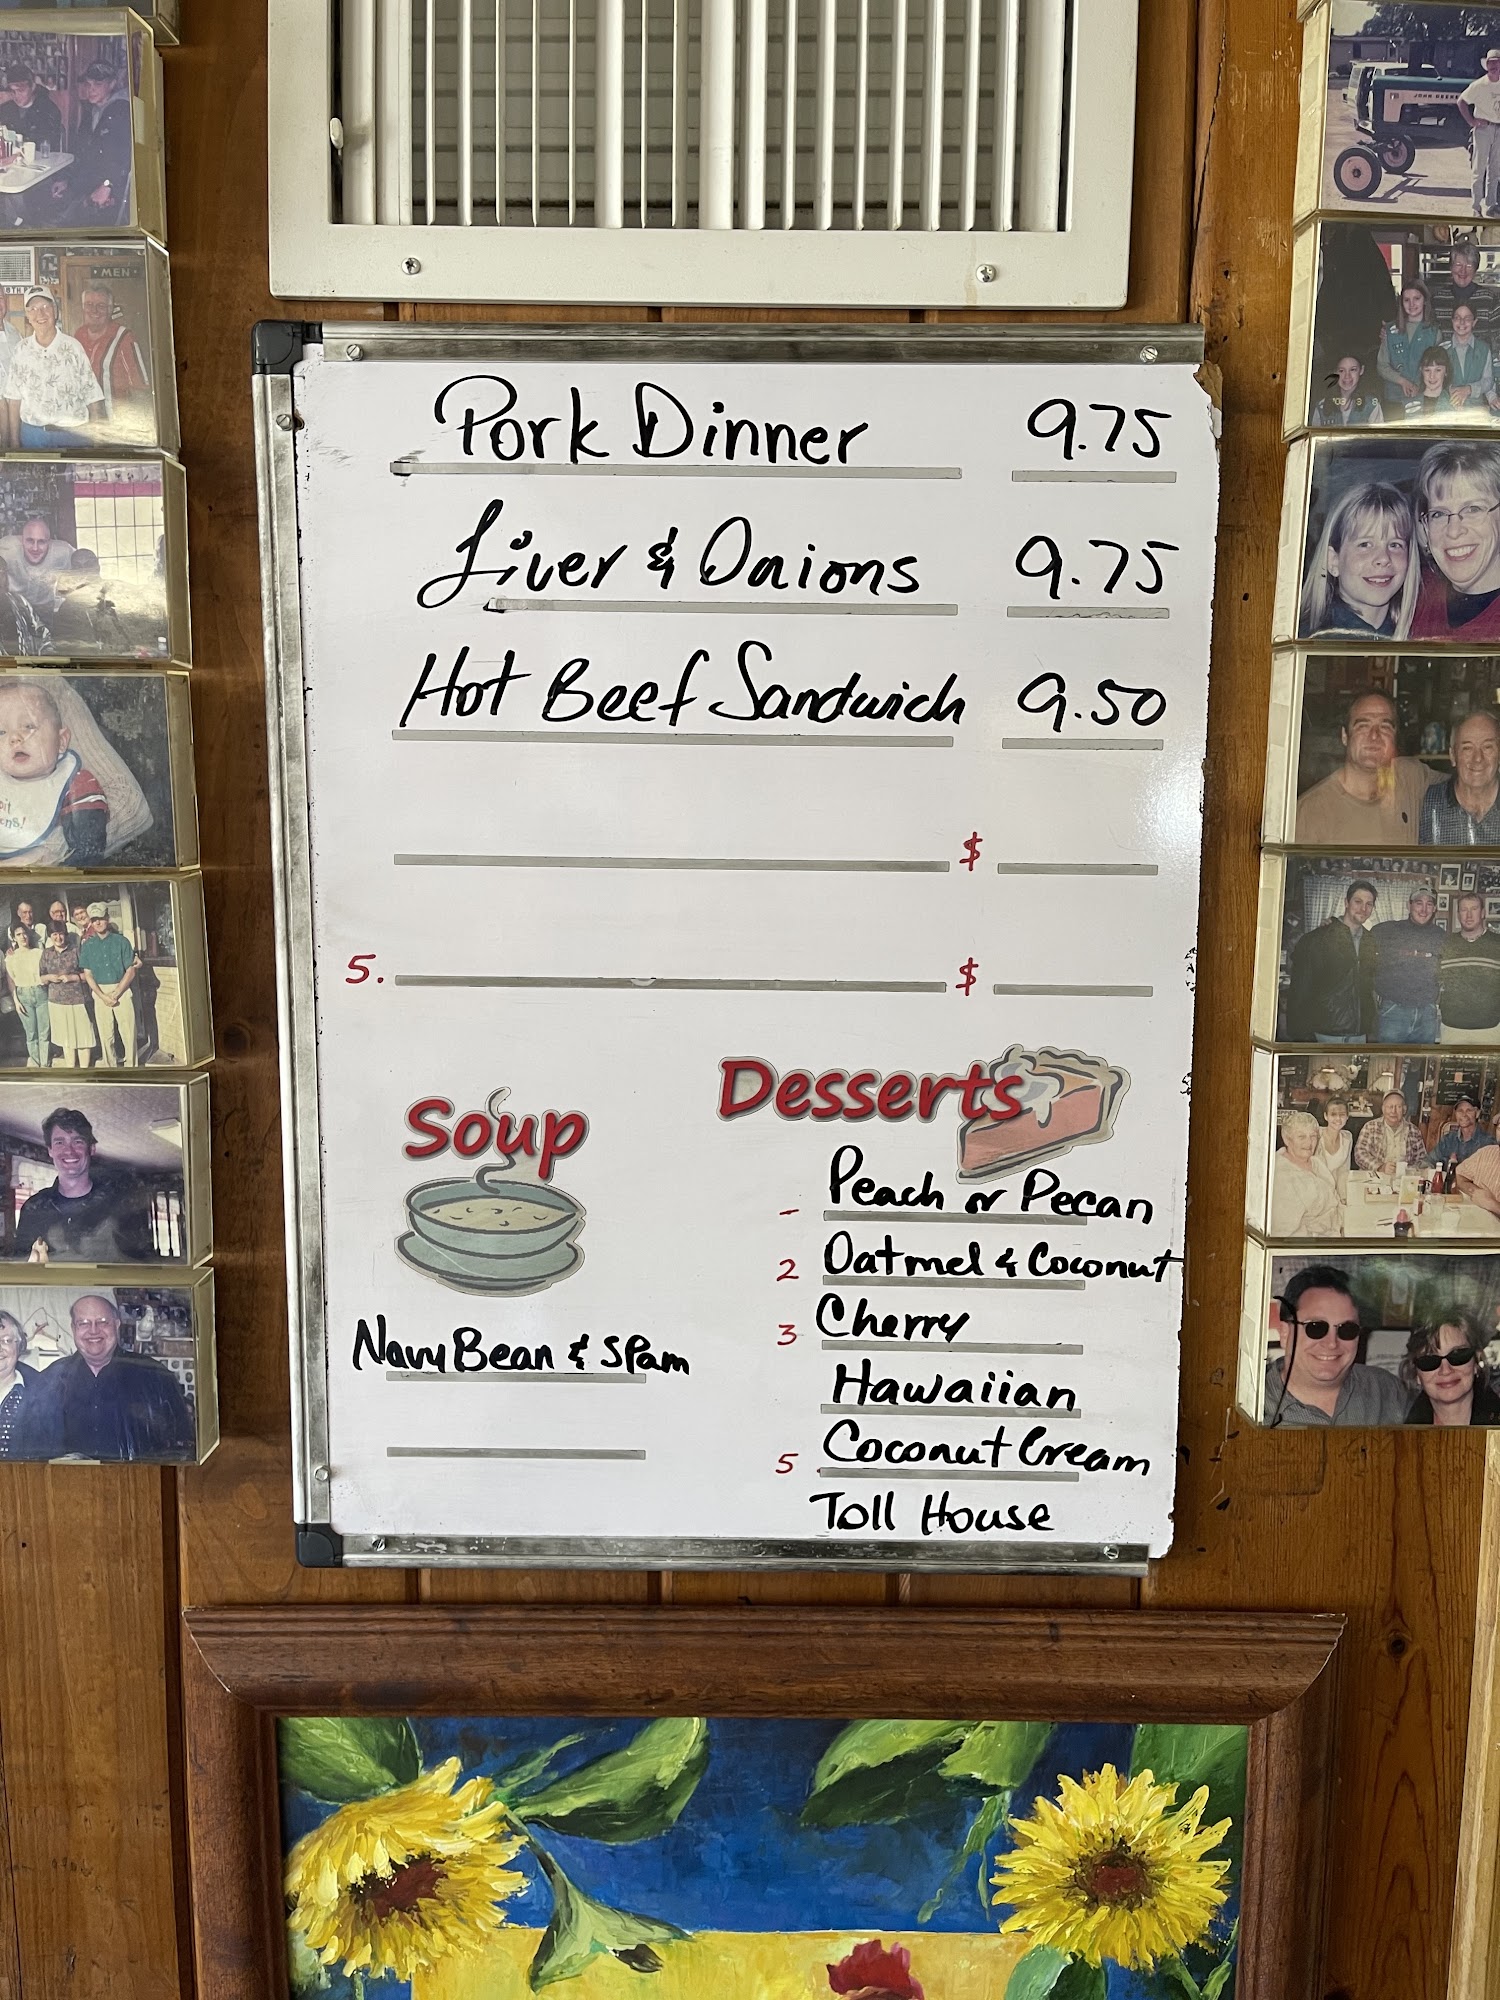 Pork Dinner 9.75
Liver & Onions 9.75
Hot Beef Sandwich 9.50
$
5. $
Soup
Navy Bean & SPam
Desserts
Peach or Pecan
2 Oatmel & Coconut
3 Cherry
Hawaiian
5 Coconut Cream
Toll House
MEN
JOHN DEERE